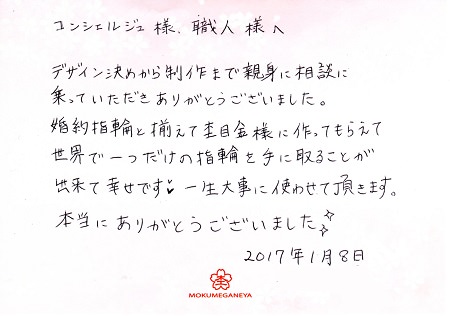 コンシェルジュ様、職人様へ
デザイン決めから制作まで親身に相談に
乗っていただきありがとうございました。
婚約指輪と揃えて杢目金様に作ってもらえて
世界で一つだけの指輪を手に取ることが
出来て幸せです♥一生大事に使わせて頂きます。
本当にありがとうございました✨
2017年1月8日
杢
MOKUMEGANEYA